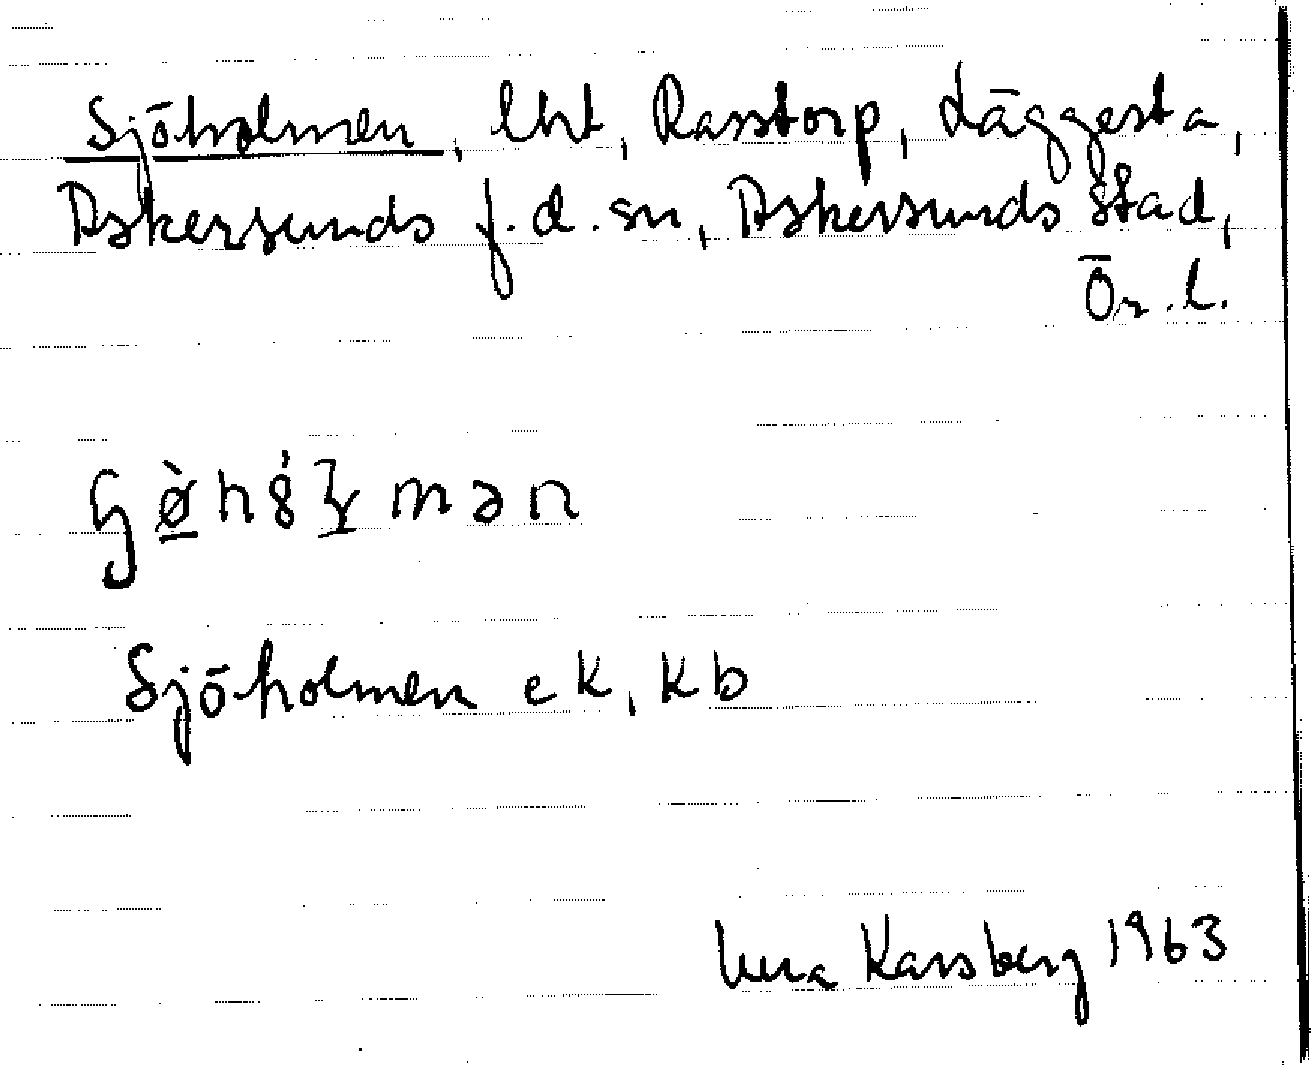 Sjöholmen, lht, Rasstorp, Läggesta,
Askersunds f.d. sn, Askersunds stad,
Ör. l.
Sjöholmen ek, kb
Karsberg 1963